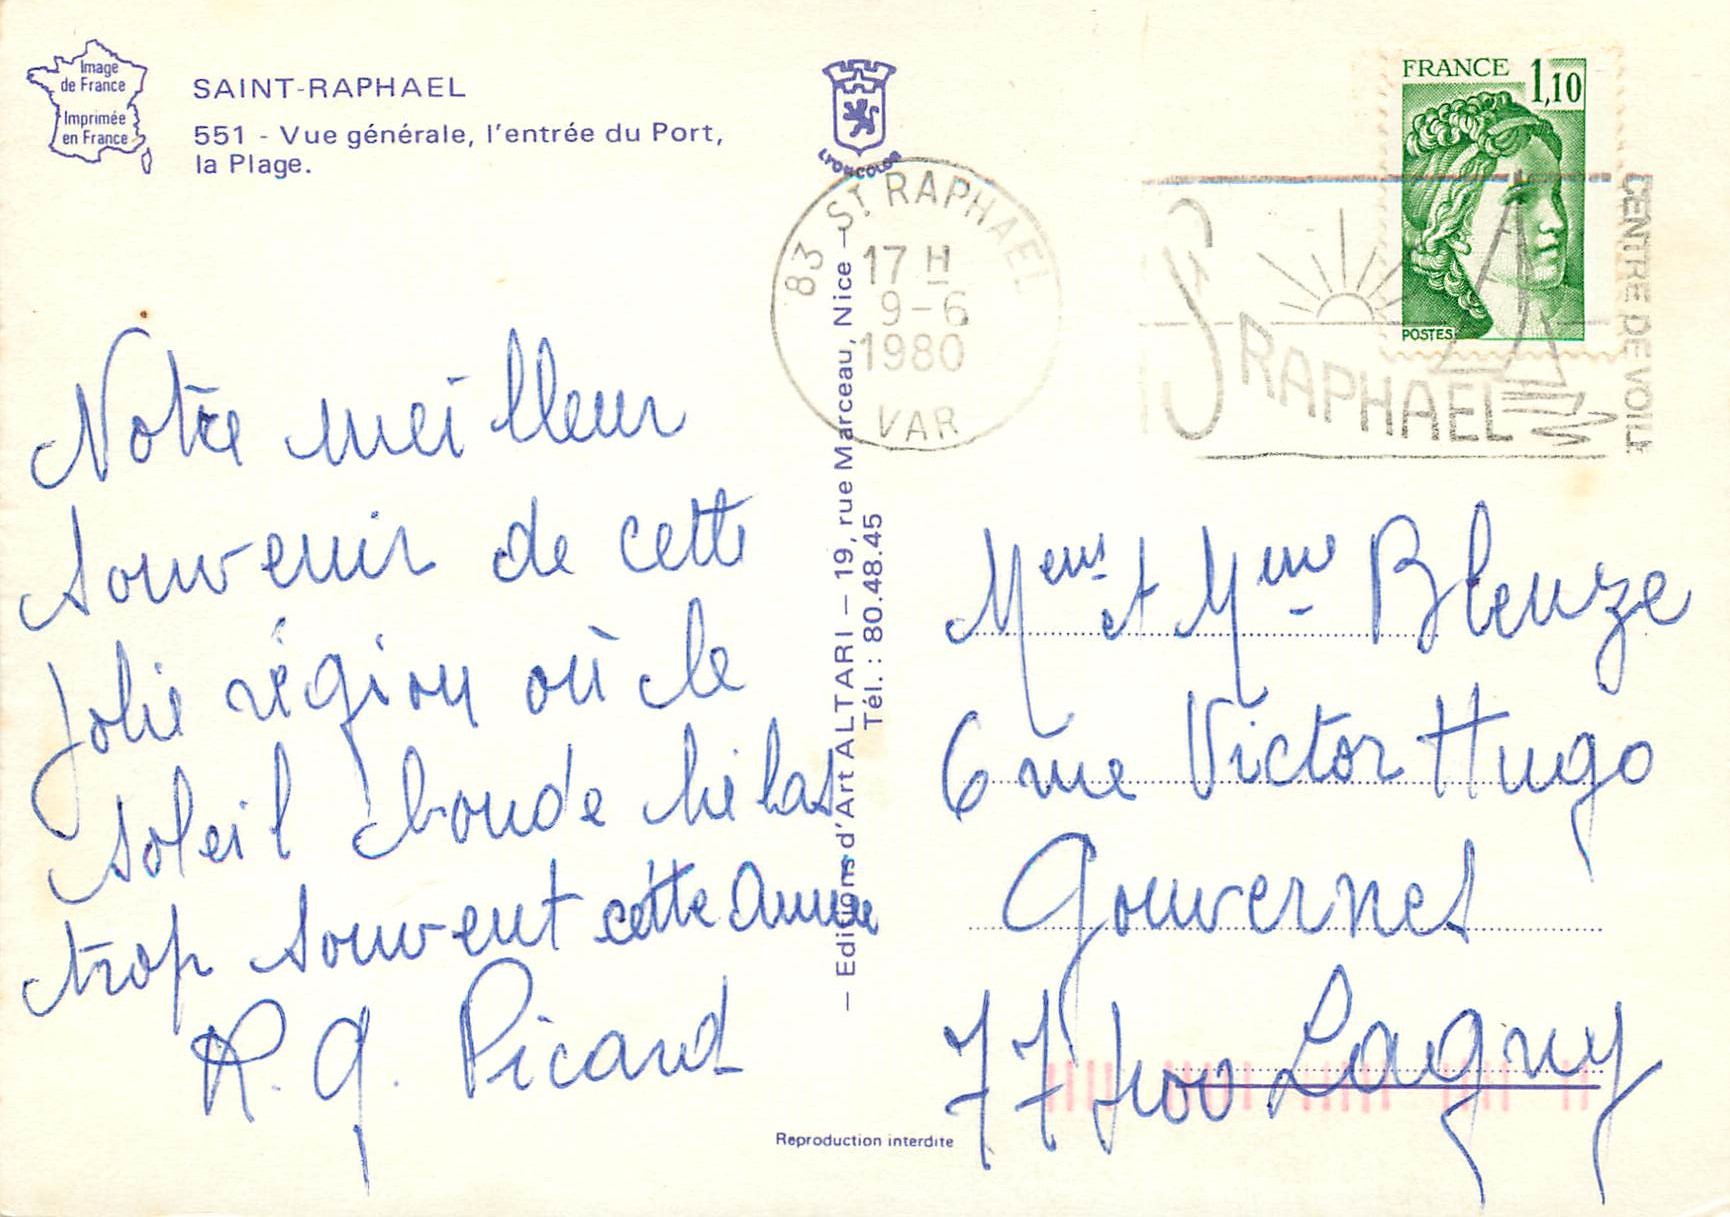 Image
de France
Imprimée
en France
SAINT-RAPHAEL
551 - Vue générale, l'entrée du Port,
la Plage.
LYONCOLOR
83 ST RAPHAEL
17 H
9-6
1980
VAR
FRANCE 1,10
POSTES
ST RAPHAEL
CENTRE DE VOILE
Notre meilleur
souvenir de cette
jolie région où le
soleil boude hélas
trop souvent cette année
R. G. Picard
— Editions d'Art ALTARI — 19, rue Marceau, Nice —
Tél. : 80.48.45
Mens et Mme Bleuze
6 rue Victor Hugo
Gouvernes
77400 Lagny
Reproduction interdite